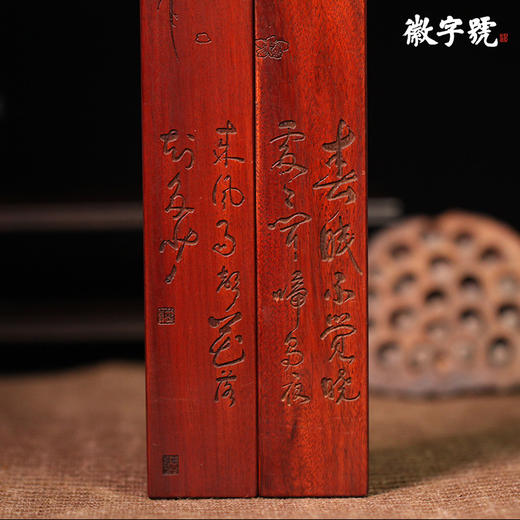 徽字號
春眠不觉晓
处处闻啼鸟夜
来风雨声花落
知多少